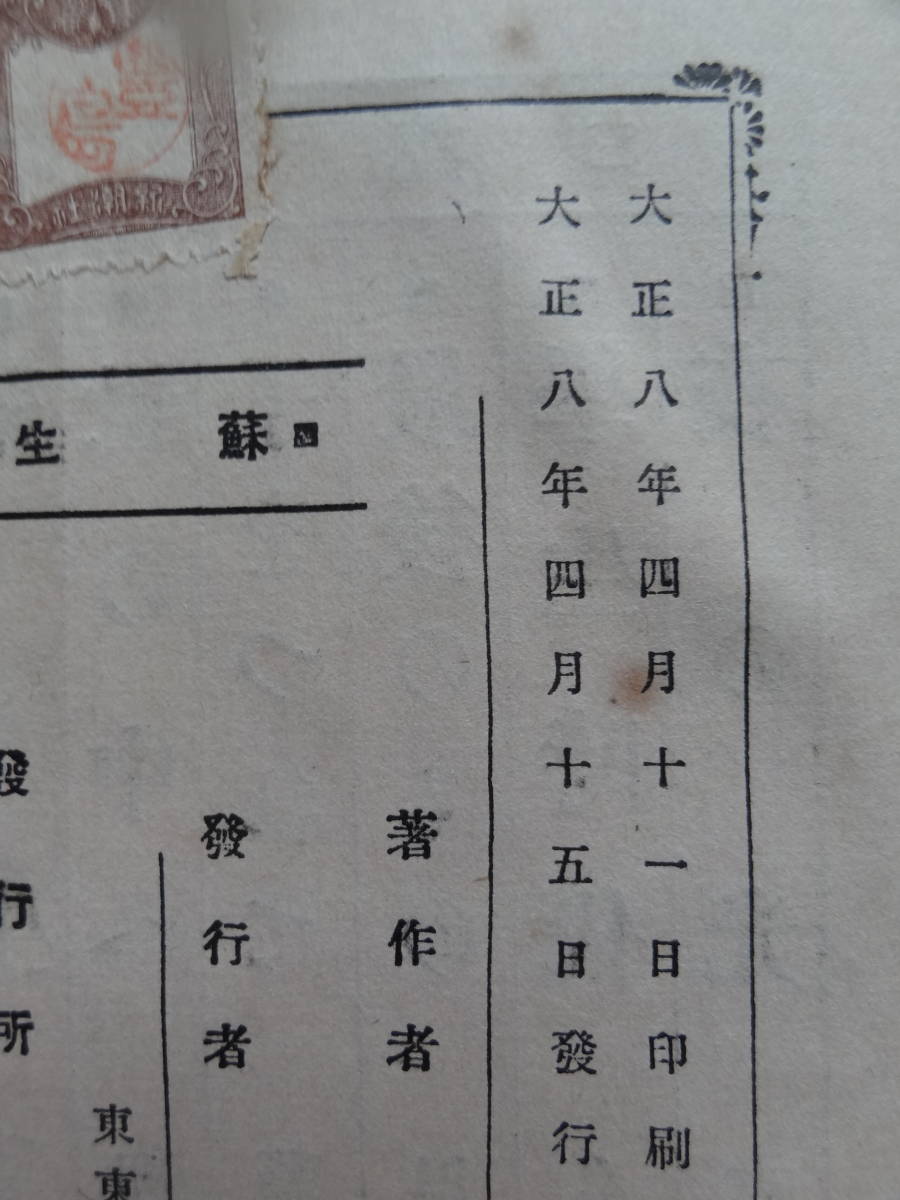 大正八年四月十一日印刷
大正八年四月十五日發行
新潮社
蘇生
著作者
發行者
發行所
東
東